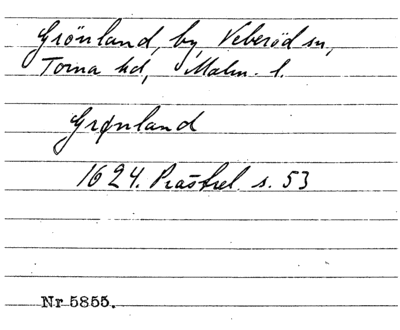 Grönland, by, Veberöd sn,
Torna hd, Malm. l.
Grønland
1624. Prästrel. s. 53
Nr 5855.